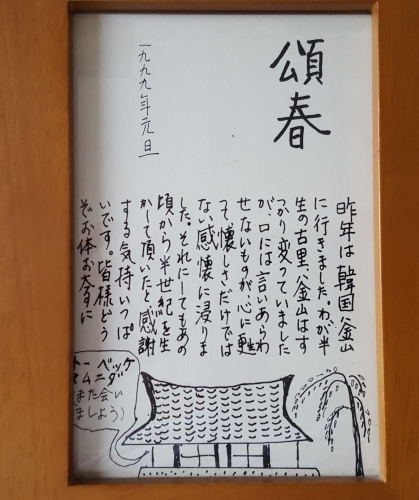 頌春
一九九九年元旦
昨年は韓国、釜山
に行きました。わが半
生の古里、釜山はす
っかり変っていました
が、口には言いあらわ
せないものが、心に甦
って、懐しさだけでは
ない感懐に浸りま
した。それにしてもあの
頃から半世紀を生
かして頂いたと、感謝
する気持いっぱ
いです。皆様どう
ぞお体お大事に
トーベッケ
スムニダ
(また会い
ましょう)